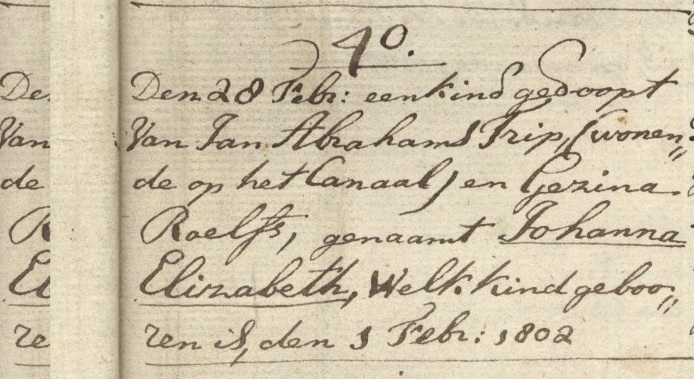 40.
Den 28 Febr: een kind gedoopt
Van Jan Abrahams Trip, (wonen„
de op het Canaal) en Gezina
Roelfs, genaamt Johanna
Elizabeth, Welk kind geboo„
ren is, den 1 Febr: 1802